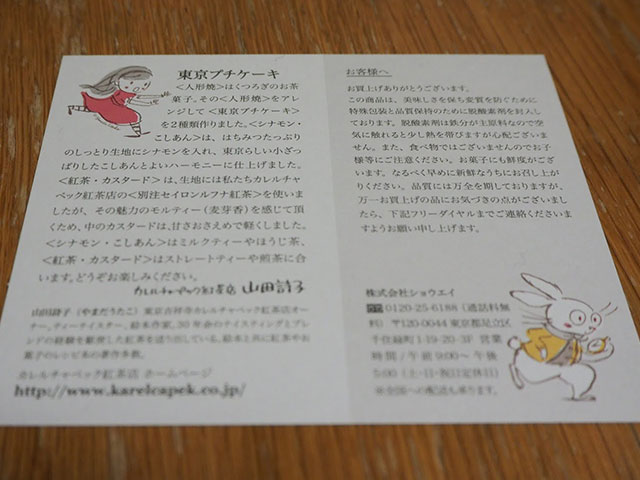 東京プチケーキ
＜人形焼＞はくつろぎのお茶
菓子。その＜人形焼＞をアレ
ンジして＜東京プチケーキ＞
を２種類作りました。＜シナモン・
こしあん＞は、はちみつたっぷり
のしっとり生地にシナモンを入れ、東京らしい小ざっ
ぱりしたこしあんとよいハーモニーに仕上げました。
＜紅茶・カスタード＞は、生地には私たちカレルチャ
ペック紅茶店の＜別注セイロンルフナ紅茶＞を使いま
したが、その魅力のモルティー（麦芽香）を感じて頂
くため、中のカスタードは、甘さおさえめで軽くしました。
＜シナモン・こしあん＞はミルクティーやほうじ茶、
＜紅茶・カスタード＞はストレートティーや煎茶に合
います。どうぞお楽しみください。
カレルチャペック紅茶店 山田詩子
山田詩子（やまだうたこ）東京吉祥寺カレルチャペック紅茶店オー
ナー。ティーテイスター、絵本作家。30年余のテイスティングとブレ
ンドの経験を駆使した紅茶を送り出している。絵本と共に紅茶やお
菓子のレシピ本の著作多数。
カレルチャペック紅茶店 ホームページ
http://www.karelcapek.co.jp/
お客様へ
お買上げありがとうございます。
この商品は、美味しさを保ち変質を防ぐために
特殊包装と品質保持のために脱酸素剤を封入し
ております。脱酸素剤は鉄分が主原料なので空
気に触れると少し熱を帯びますが心配ございま
せん。また、食べ物ではございませんのでお子
様等にご注意ください。お菓子にも鮮度がござ
います。なるべく早めに新鮮なうちにお召し上が
りください。品質には万全を期しておりますが、
万一お買上げの品にお気づきの点がございまし
たら、下記フリーダイヤルまでご連絡くださいま
すようお願い申し上げます。
株式会社ショウエイ
0120-25-6188（通話料無
料）〒120-0044 東京都足立区
千住緑町 1-19-20-3F 営業
時間／午前 9:00～午後
5:00（土・日・祝日定休日）
※全国への配送も承ります。